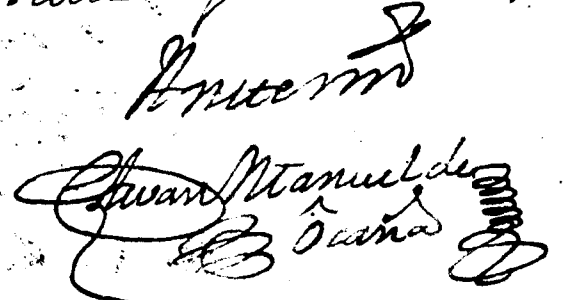 Ante mi
Juan Manuel de
Ocaña